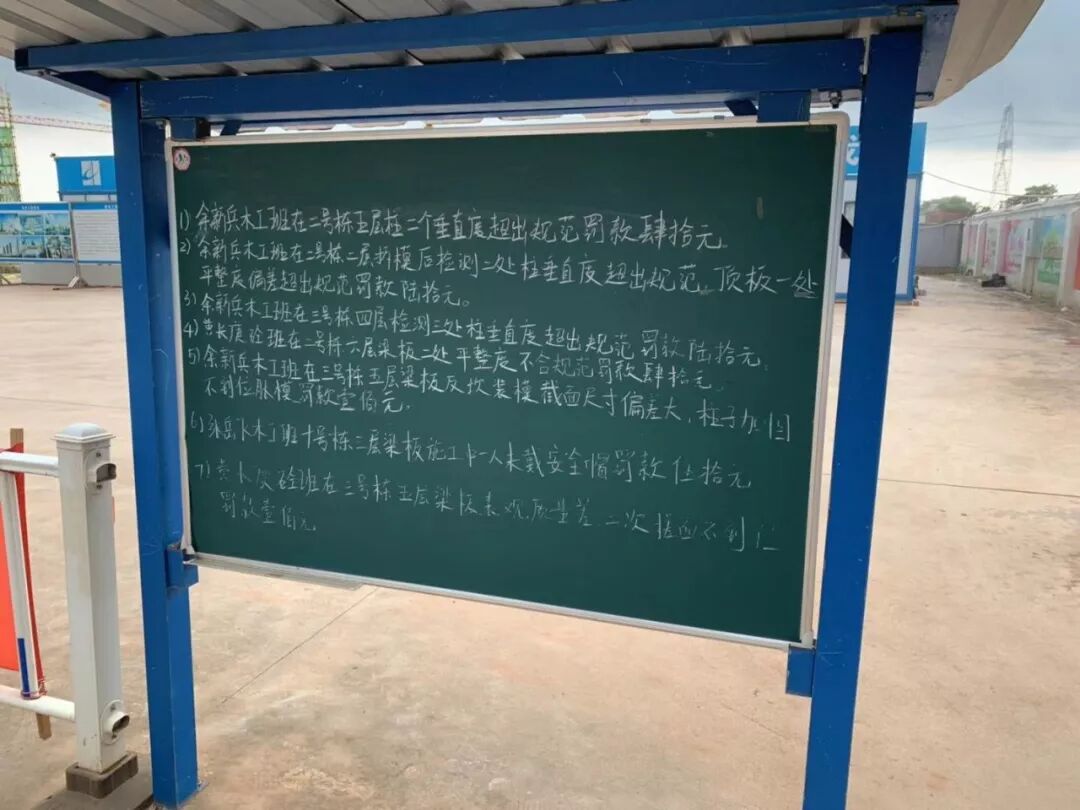 1) 余新兵木工班在二号栋五层柱二个垂直度超出规范罚款肆拾元.
2) 余新兵木工班在三号栋二层拆模后检测二处柱垂直度超出规范,顶板一处
平整度偏差超出规范罚款陆拾元。
3) 余新兵木工班在三号栋四层检测三处柱垂直度超出规范罚款陆拾元.
4) 长度砼班在二号栋六层梁板二处平整度不合规范罚款肆拾元.
5) 余新兵木工班在三号栋五层梁板反坎装模截面尺寸偏差大,柱子加固
不到位胀模罚款壹佰元.
6) 木工班十号栋三层梁板施工中一人未戴安全帽罚款伍拾元
7) 砼班在三号栋五层梁板表观质量差,二次搓面不到位
罚款壹佰元
龙